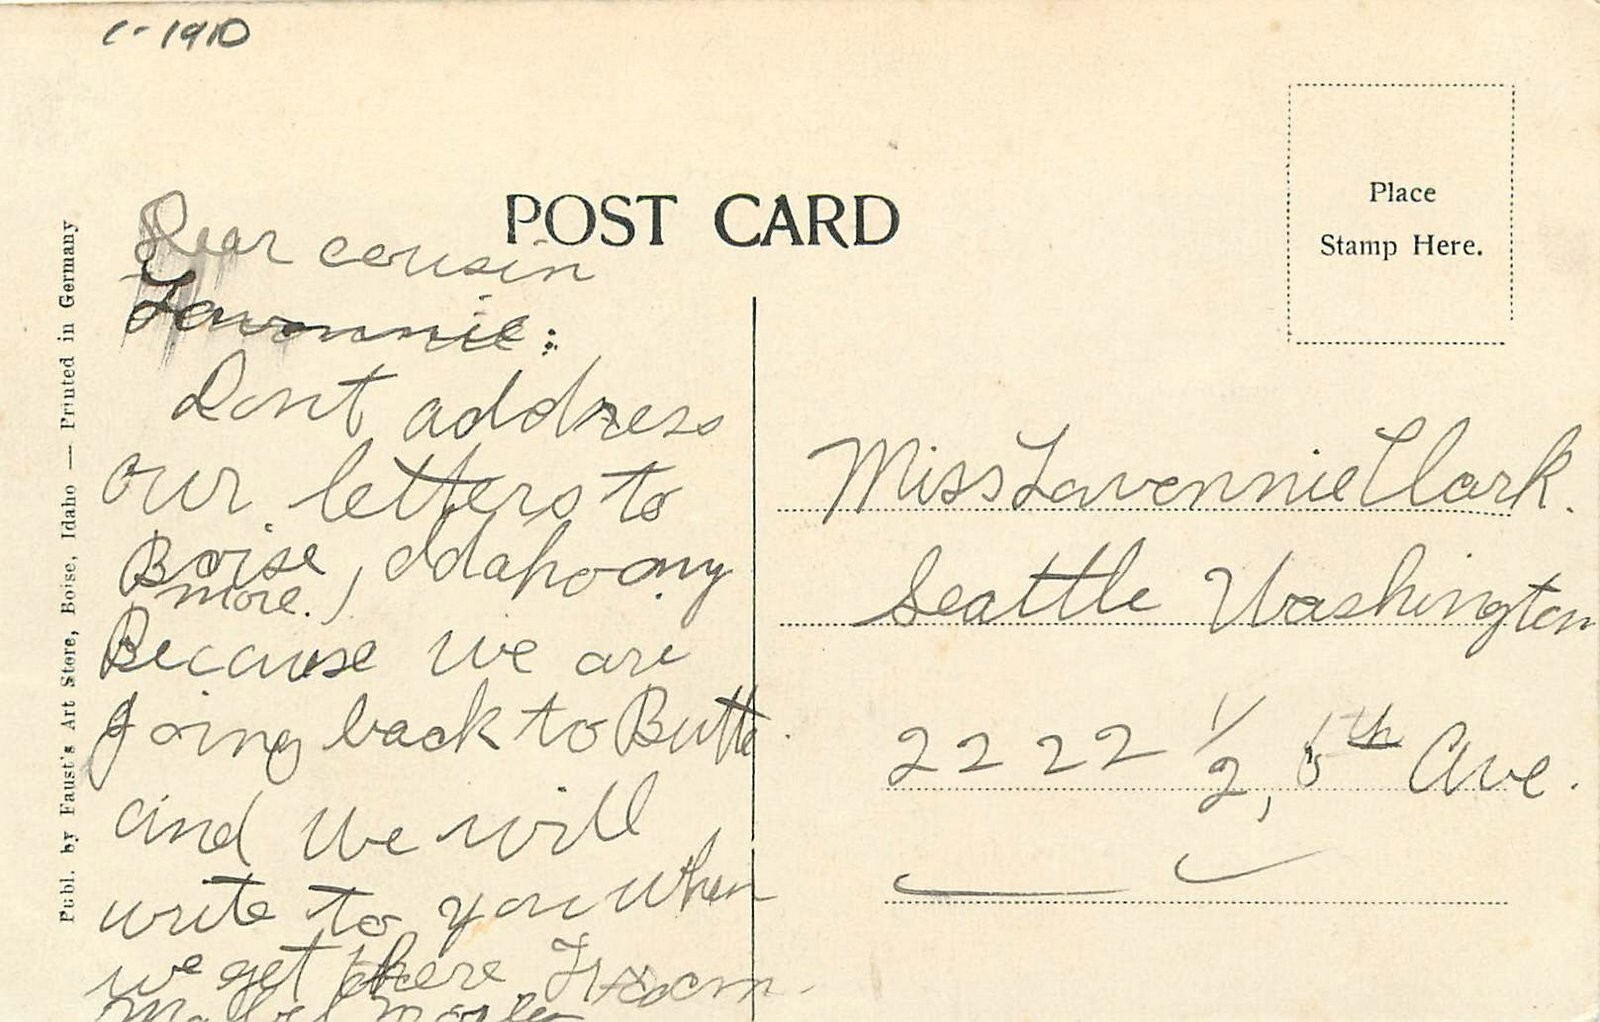 c-1910
POST CARD
Place
Stamp Here.
Publ. by Faust's Art Store, Boise, Idaho — Printed in Germany
Dear cousin
Lavennie:
Dont address
our letters to
Boise, Idaho any
more.
Because we are
going back to Butte.
and we will
write to you when
we get there From
Mabel
Miss Lavennie Clark.
Seattle Washington
2222 1/2, 5th Ave.